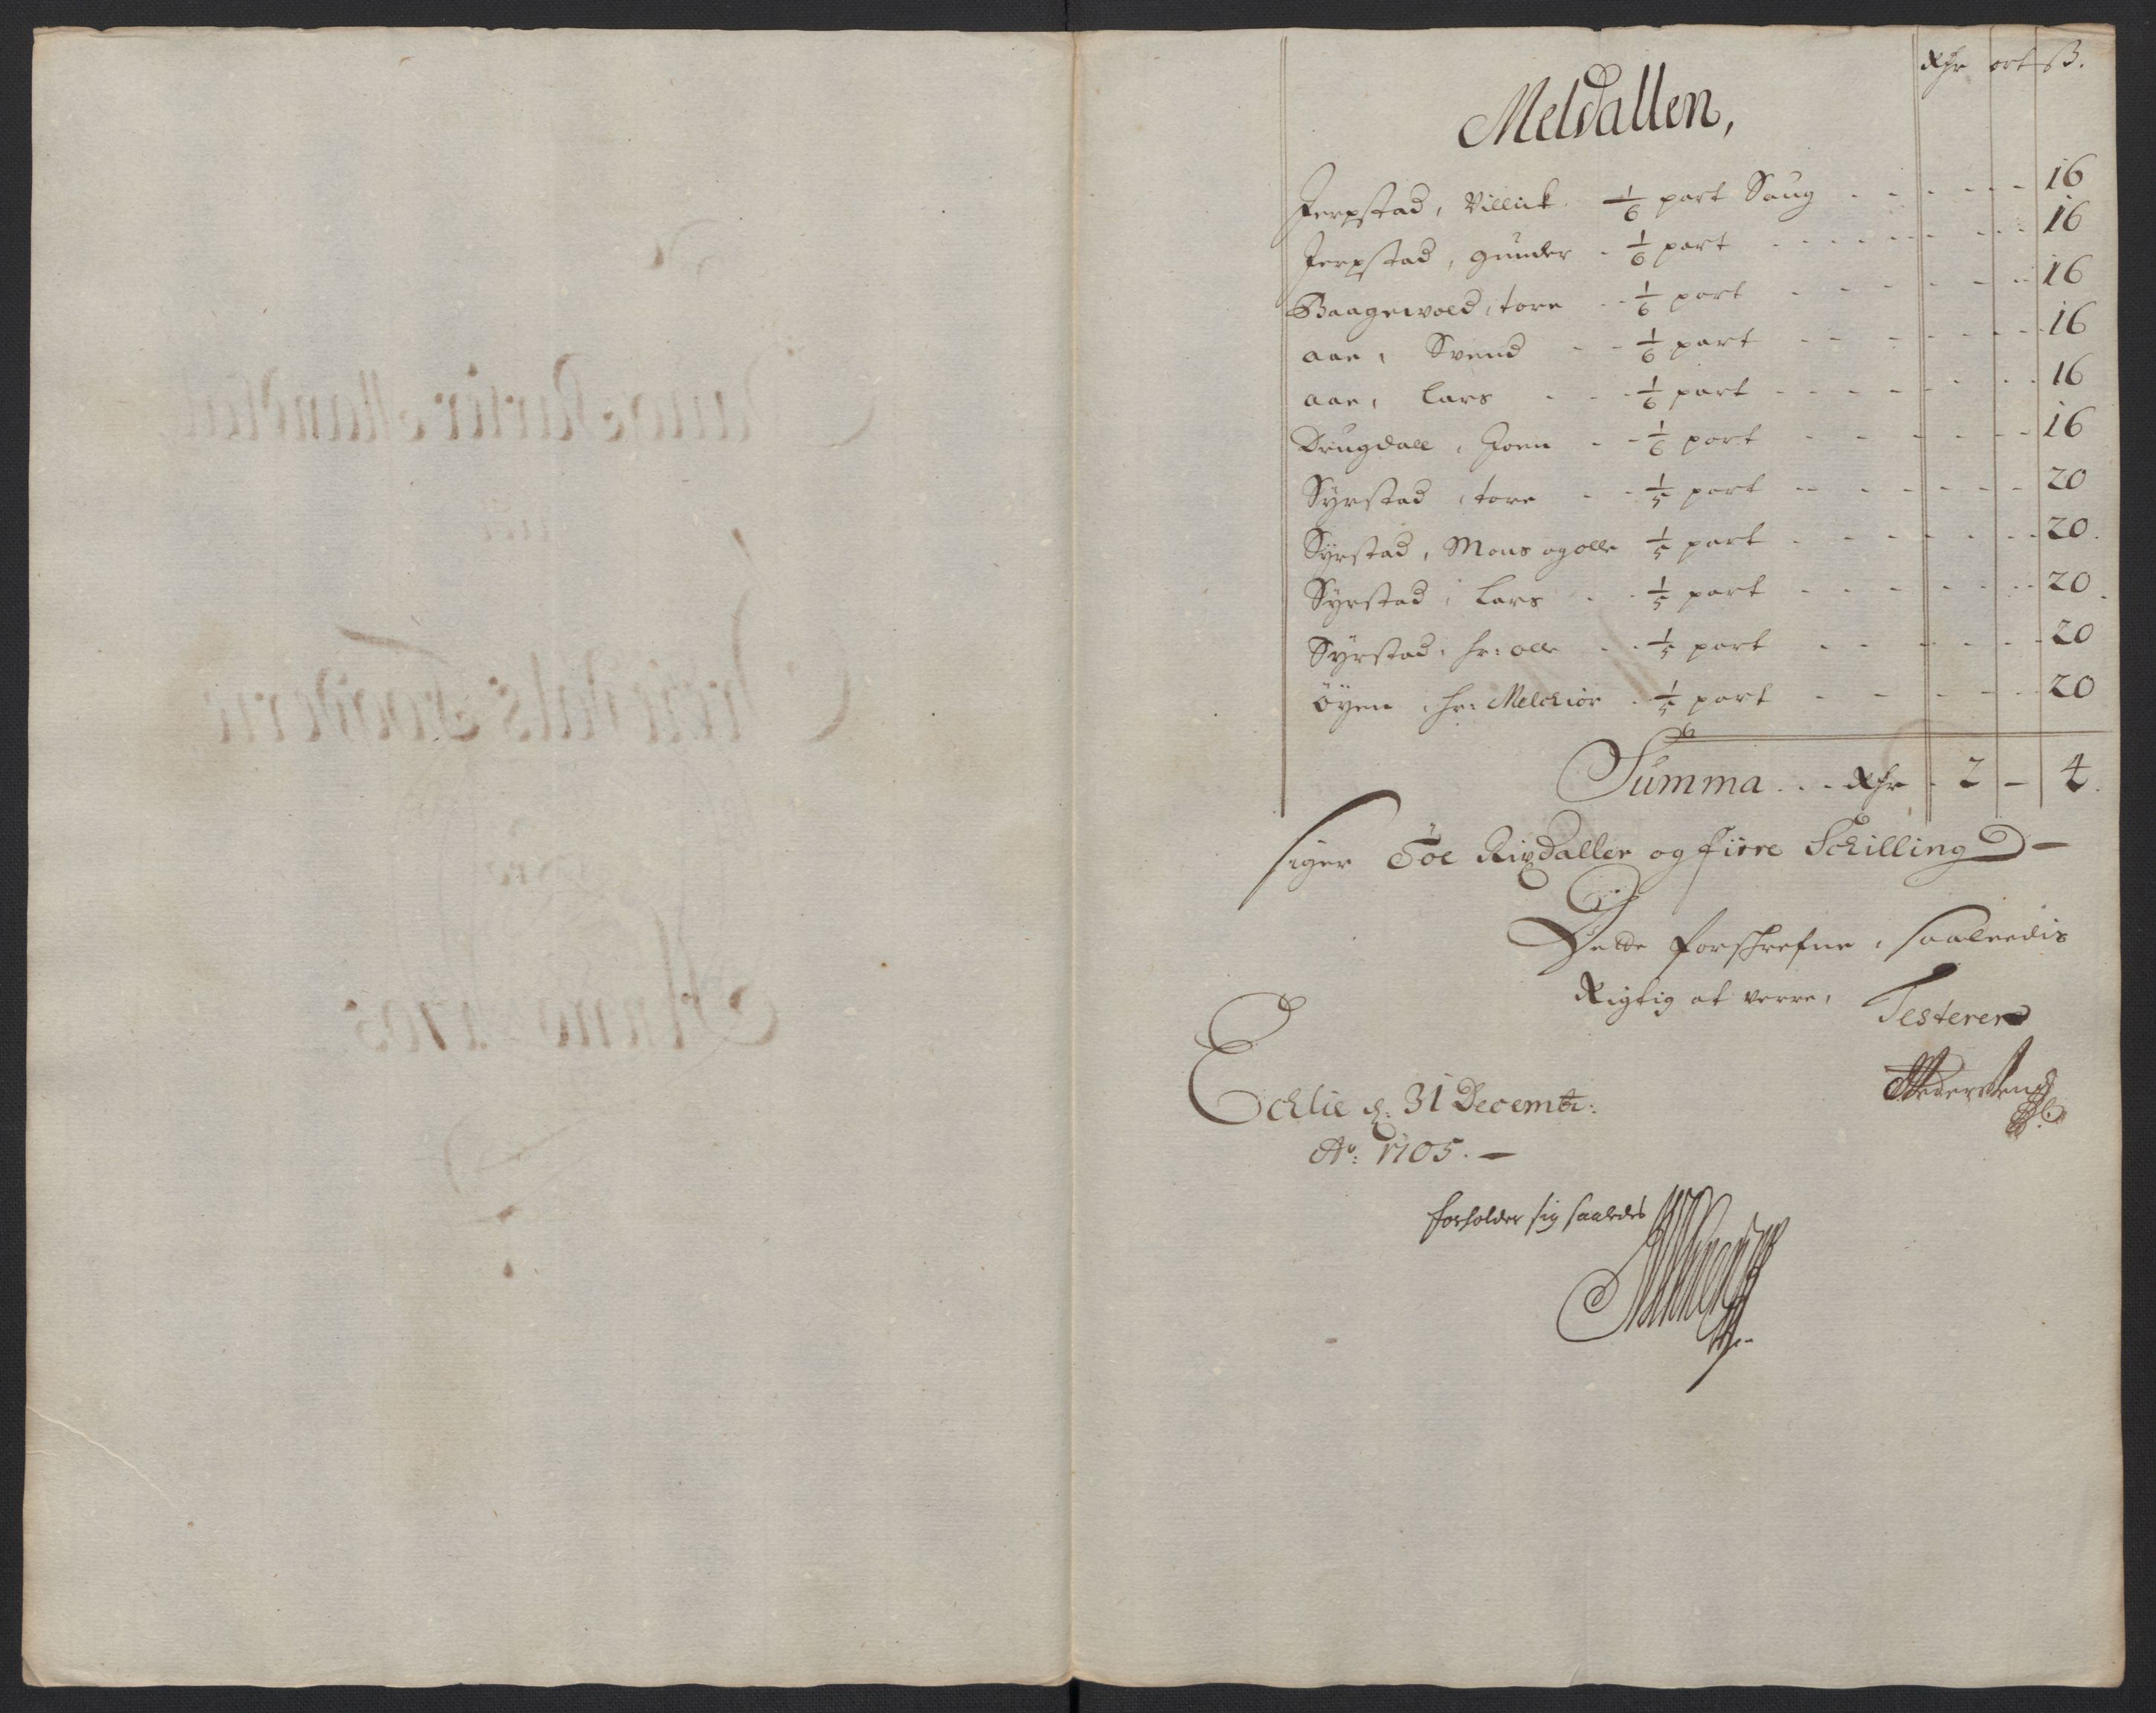 Rdr ort ß.
Meldallen,
Jerpstad, Villick. 1/6 part Saug - - - - - 16
Jerpstad, gunder - 1/6 part - - - - - 16
Baagewold, tore - - 1/6 part - - - - - 16
aae, Svend - - 1/6 part - - - - - 16
aae, Lars - - 1/6 part - - - - - 16
Drugdall, Joen - - 1/6 part - - - - - 16
Syrstad, tore - - 1/5 part - - - - - 20
Syrstad, Mons og olle 1/5 part - - - - - 20.
Syrstad, Lars - - 1/5 part - - - - - 20.
Syrstad, hr: olle - - 1/5 part - - - - - 20
öyen, hr: Melchior - 1/5 part - - - - - 20
Summa - - Rdr - 2 - 4.
siger Toe Rixdaller og fiire Schilling
Dette forschrefne, saaleedis
Rigtig at verre, Testerer
Echlie d: 31 Decembr:
Ao: 1705. —
forholder sig saaledes
Anno 1705